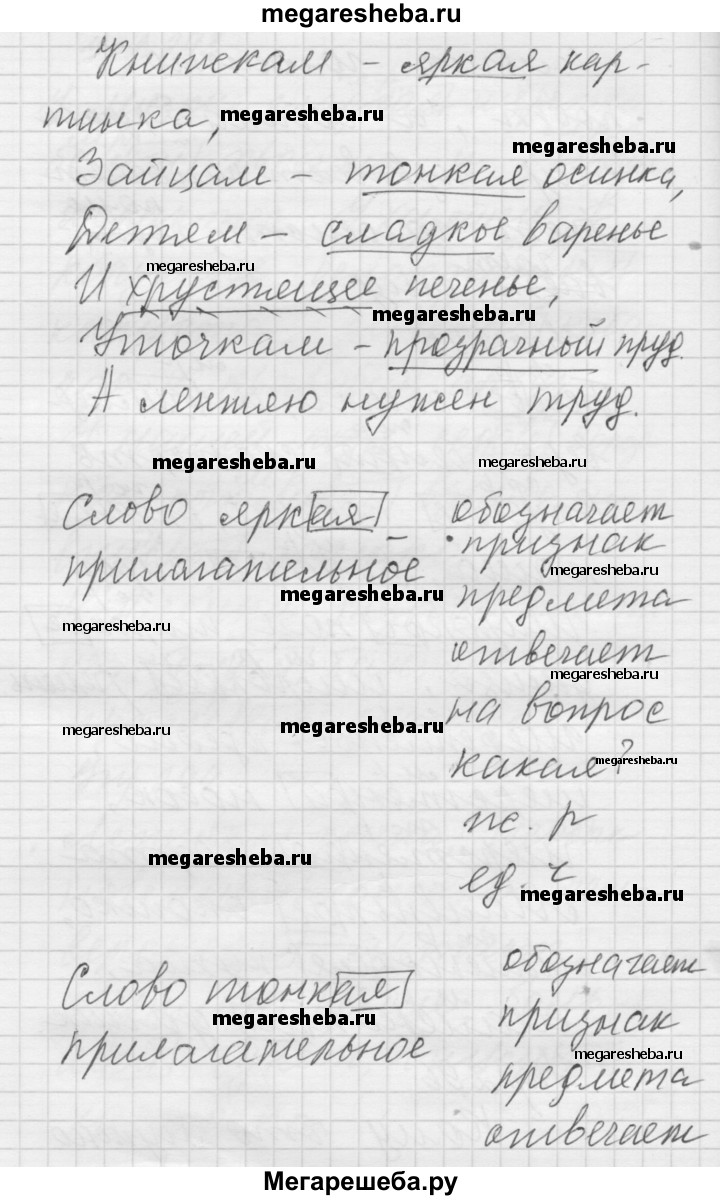 megaresheba.ru
Книжкам – яркая кар-
тинка,
megaresheba.ru
megaresheba.ru
Зайцам – тонкая осинка,
Детям – сладкое варенье
megaresheba.ru
И хрустящее печенье,
megaresheba.ru
Уточкам – прозрачный пруд.
А лентяю нужен труд.
megaresheba.ru
megaresheba.ru
Слово яркая обозначает
прилагательное признак
megaresheba.ru
megaresheba.ru
предмета
megaresheba.ru
отвечает
megaresheba.ru
на вопрос
megaresheba.ru
megaresheba.ru
какая?
megaresheba.ru
ж. р
megaresheba.ru
ед. ч
megaresheba.ru
обозначает
Слово тонкая
megaresheba.ru
признак
прилагательное
megaresheba.ru
предмета
отвечает
Мегарешеба.ру